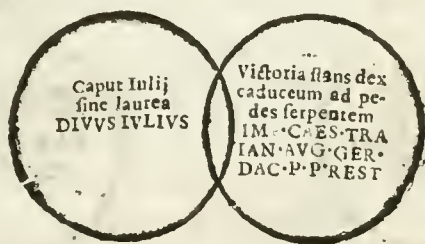 Caput Iulij
ſine laurea
DIVVS IVLIVS
Victoria ſtans dex
caduceum ad pe-
des ſerpentem
IM · CAES · TRA
IAN · AVG · GER ·
DAC · P · P · REST